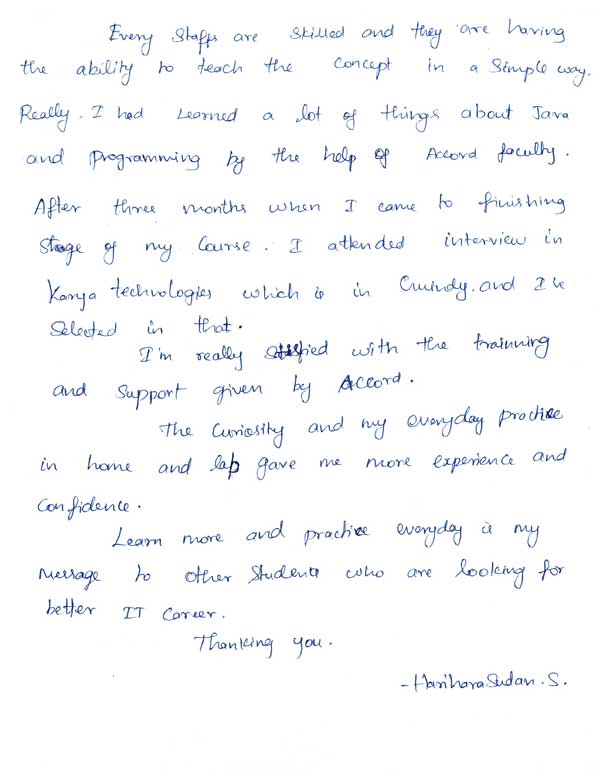 Every Staffs are skilled and they are having
the ability to teach the concept in a simple way.
Really. I had Learned a lot of things about Java
and programming by the help of Accord faculty.
After three months when I came to finishing
Stage of my Course. I attended interview in
Kanya technologies which is in Guindy. and I've
Selected in that.
I'm really satisfied with the trainning
and support given by Accord.
The Curiosity and my everyday practice
in home and lab gave me more experience and
Confidence.
Learn more and practice everyday is my
Message to other students who are looking for
better IT Career.
Thanking you.
- Hariharasudan. S.